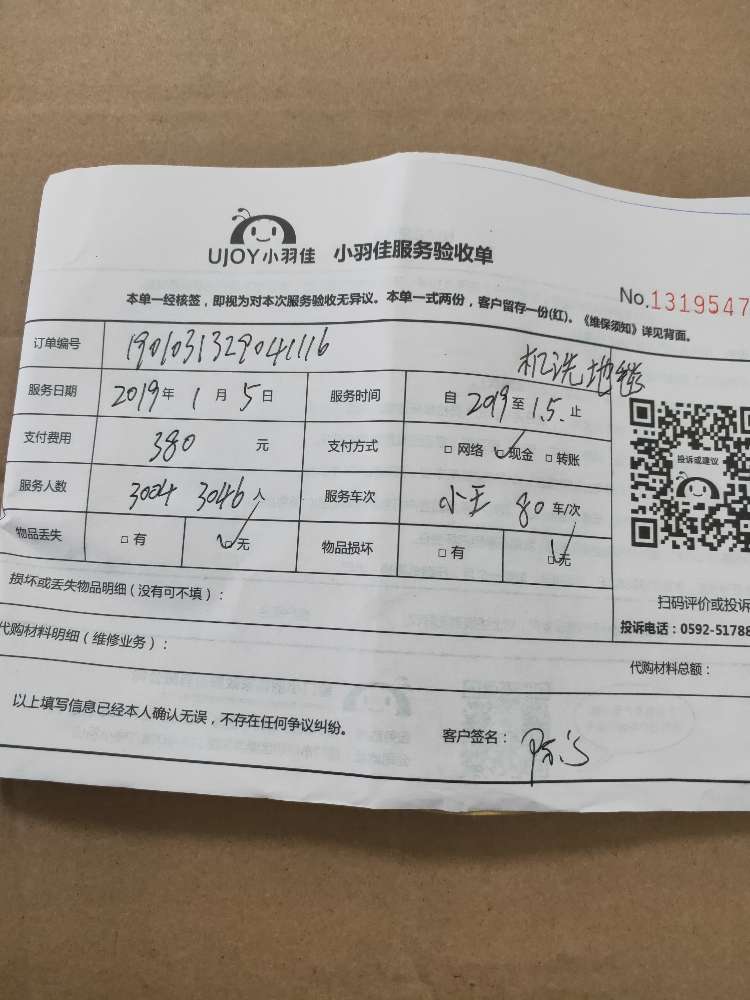 UJOY小羽佳 小羽佳服务验收单
No.1319547
本单一经核签，即视为对本次服务验收无异议。本单一式两份，客户留存一份(红)。《维保须知》详见背面。
订单编号 1901031329041116 机洗地毯
服务日期 2019年 1月 5日 服务时间 自 2019 至 1.5. 止
支付费用 380 元 支付方式 □ 网络 ☑ 现金 □ 转账
服务人数 3004 3046 人 服务车次 小王 80 车/次
物品丢失 □ 有 ☑ 无 物品损坏 □ 有 ☑ 无
投诉或建议
损坏或丢失物品明细（没有可不填）：
扫码评价或投诉
投诉电话：0592-51788
代购材料明细（维修业务）：
代购材料总额：
以上填写信息已经本人确认无误，不存在任何争议纠纷。
客户签名：